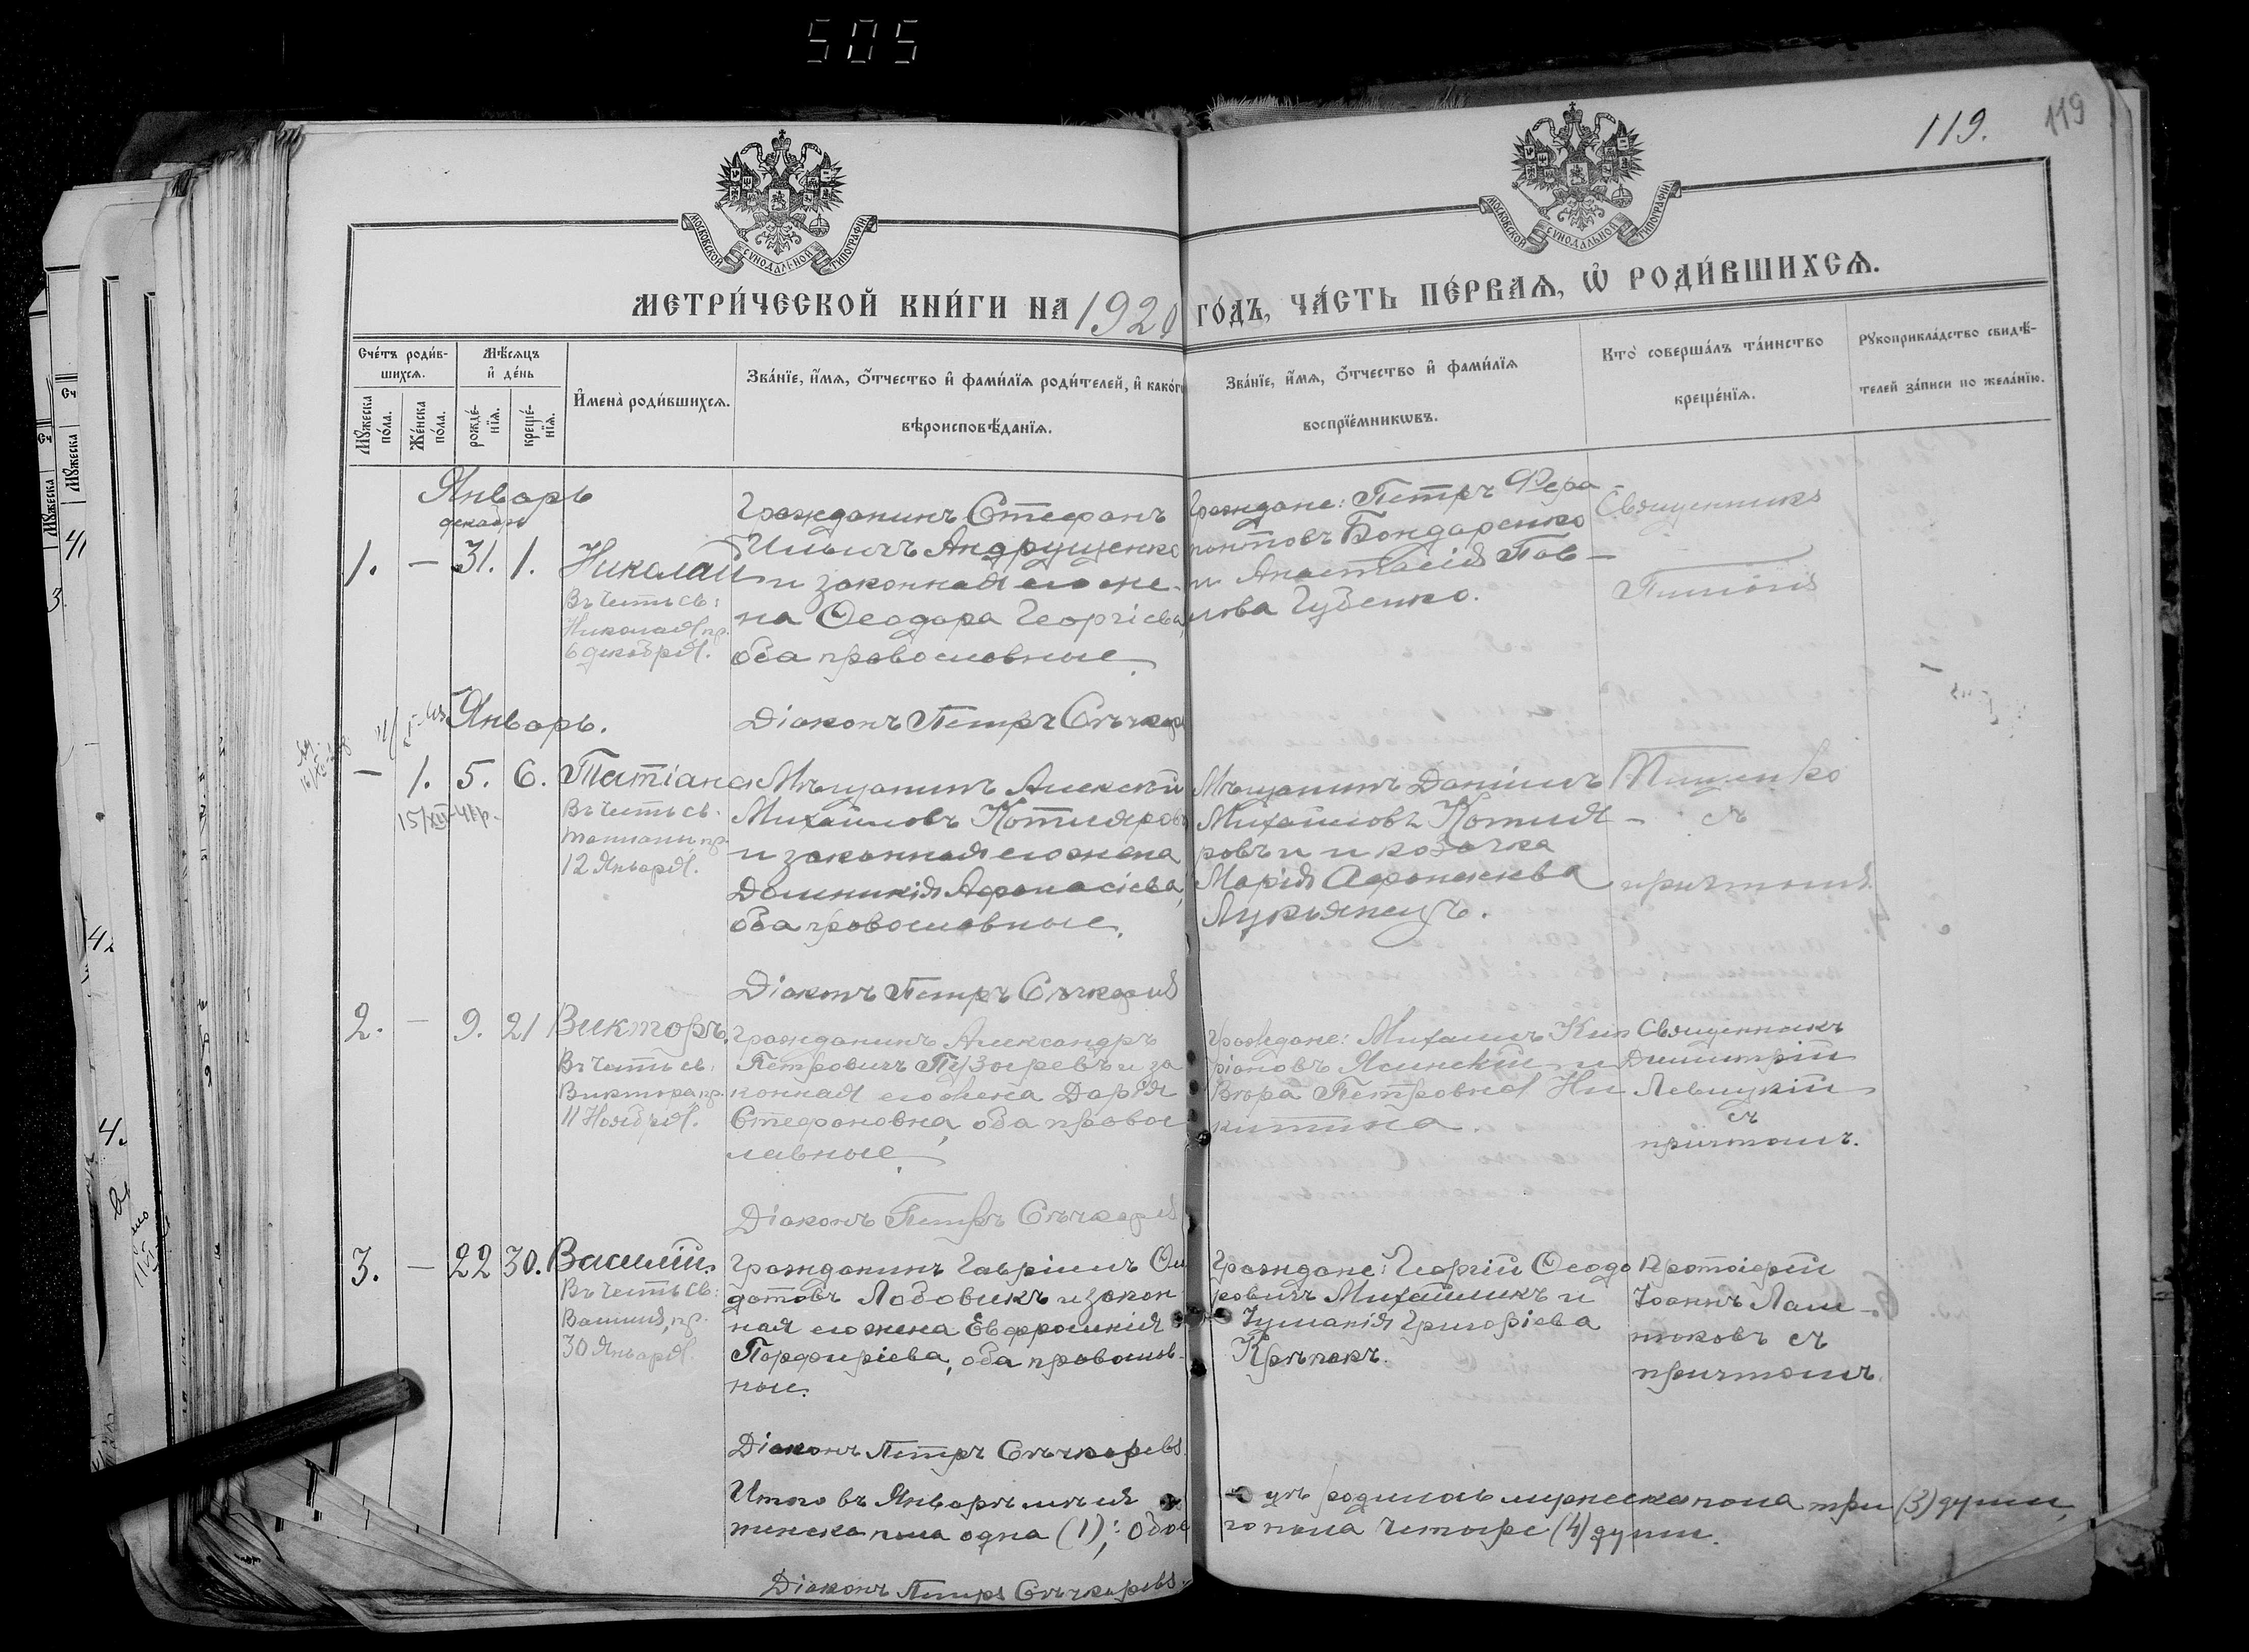 505
119.
119
МОСКОВСКОЙ СУНОДАЛЬНОЙ ТИПОГРАФІИ
МОСКОВСКОЙ СУНОДАЛЬНОЙ ТИПОГРАФІИ
МЕТРИ́ЧЕСКОЙ КНИ́ГИ НА 1920 ГО́ДЪ, ЧА́СТЬ ПЕ́РВАѦ, Ѡ҆ РОДИ́ВШИХСѦ.
Сче́тъ роди́в-
шихсѧ.
Мꙋжеска по́ла.
Же́нска по́ла.
Мѣ́сѧцъ и҆ де́нь
рожде́-нїѧ.
креще́-нїѧ.
И҆мена̀ роди́вшихсѧ.
Зва́нїе, и҆́мѧ, ѻ҆́тчество и҆ фами́лїѧ роди́телей, и҆ како́гѡ
вѣроисповѣ́данїѧ.
Зва́нїе, и҆́мѧ, ѻ҆́тчество и҆ фами́лїѧ
воспрїе́мникѡвъ.
Кто̀ соверша́лъ та́инство
креще́нїѧ.
Рꙋкоприкла́дство свидѣ́-
телей за́писи по жела́нїю.
Январь
декабрь
1. — 31. 1. Николай
Въ честь св:
Николая пр.
6 декабря.
Гражданинъ Стефанъ
Ильичъ Андрущенко
и законная его же-
на Ѳеодора Георгіева,
оба православные.
Граждане: Петръ Фера-
понтовъ Бондаренко
и Анастасія Пав-
лова Губенко.
Священникъ
Діаконъ Петръ Сѣчкаревъ
Январь.
— 1. 5. 6. Татіана
15/XII-41р.
Въ честь св.
Татианы, пр.
12 Января.
Мѣщанинъ Алексѣй
Михаиловъ Котляровъ
и законная его жена
Домникія Афанасіева,
оба православные.
Мѣщанинъ Даніилъ
Михаиловъ Котля-
ровъ и и козачка
Марія Афанасіева
Лукьянецъ.
съ
причтомъ.
Діаконъ Петръ Сѣчкаревъ
2. — 9. 21 Викторъ.
Въ честь св.
Виктора, пр.
11 Ноября.
Гражданинъ Александръ
Петровичъ Пузыревъ и за
конная его жена Дарія
Стефановна, оба правос
лавные.
Граждане: Михаилъ Кип
ріановъ Ясинскій и
Вѣра Петровна Ни
китина.
Священникъ
Димитрій
Левицкій
съ
причтомъ.
Діаконъ Петръ Сѣчкаревъ
3. — 22 30. Василій.
Въ честь св:
Василія, пр.
30 Января.
Гражданинъ Гавріилъ Ѳи
датовъ Лобовикъ и закон
ная его жена Евфросинія
Порфиріева, оба православ-
ные.
Граждане: Георгій Ѳеодо
ровичъ Михайликъ и
Іуліанія Григоріева
Протоіерей
Іоаннъ
съ
причтомъ.
Діаконъ Петръ Сѣчкаревъ
Итого въ Январѣ мѣся цѣ родилось мужеска пола три (3) души,
женска пола одна (1); обое го пола четыре (4) души.
Діаконъ Петръ Сѣчкаревъ.